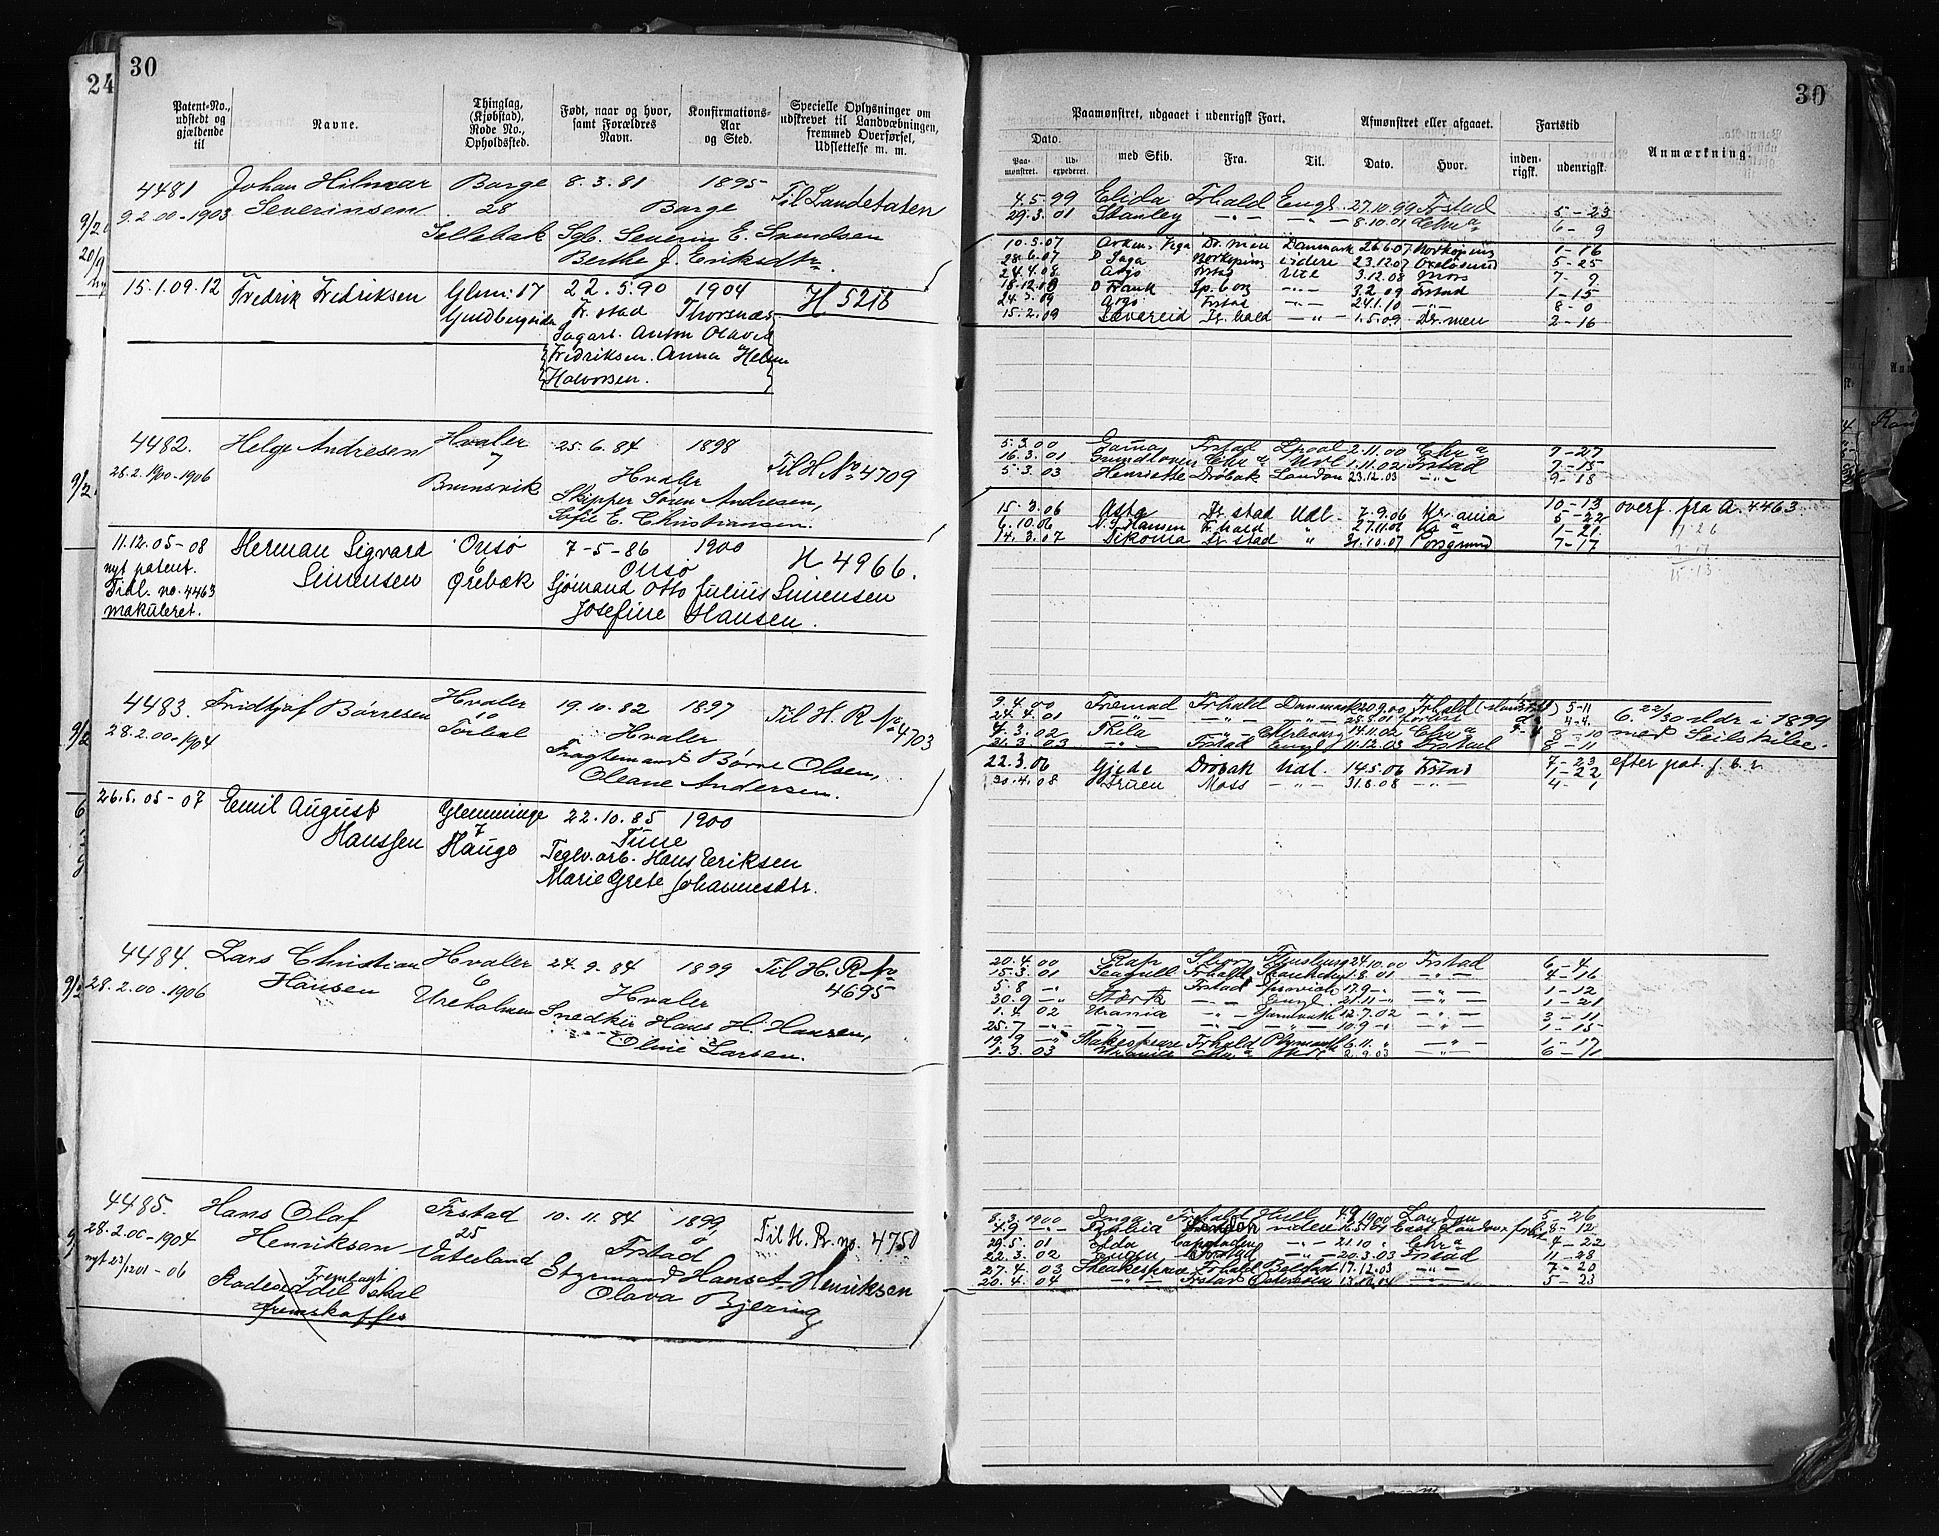 24
30
Patent-No., udstedt og gjældende til
Navne.
Thinglag, (Kjøbstad), Rode No., Opholdssted.
Født, naar og hvor, samt Forældres Navn.
Konfirmations-Aar og Sted.
Specielle Oplysninger om udskrevet til Landværnet, fremmed Overførsel, Udslettelse m. m.
4481 Johan Hilmar Borge 8.3.81 1895 Til Landetaten
9.2.00-1903 Severinsen 28 Borge
Sellebak Sgb. Severin E. Svendsen
Berthe J. Eriksdtr.
15.1.09.12 Fredrik Fredriksen Glem: 17 22.5.90 1904 H 5218
Fr.stad Thorsnæs
Sagarb. Anton Olavis
Fredriksen. Anna Helene
Halvorsen.
4482. Helge Andresen Hvaler 25.6.84 1898 Til H. No 4709
28.2.1900-1906 7 Hvaler
Brunsvik Skipper Søren Andresen,
Sofie E. Christiansen.
11.12.05-08 Herman Sigvard Onsø 7-5-86 1900 H 4966.
nyt patent. Simensen 6 Onsø
Tidl. no. 4463 Ørebæk Sjømand Otto Julius Simensen
makuleret. Josefine Hansen.
4483. Fridtjof Børresen Hvaler 19.10.82 1897 Til H. R. No 4703
28.2.00-1904 10 Hvaler
Fragtemand Børre Olsen,
Oleane Andersen.
26.5.05-07 Emil August Glemminge 22.10.85 1900
Hanssen 7 Tune
Hauge Teglv.arb. Hans Eriksen
Marie Grete Johannesdtr.
4484. Lars Christian Hvaler 24.9.84 1899 Til H. R. No
28.2.00-1906 Hansen 6 Hvaler 4695
Ureholmen Snedker Hans H. Hansen,
Oline Larsen.
4485. Hans Olaf Frstad 10.11.84 1899 Til H. R. no. 4750
28.2.00-1904 Henriksen 25 Frstad
nyt 23/12 01-06 Vaterland Styrmand Hans A. Henriksen
Fremlagt Olava Bjerring
Rodeseddel skal
fremskaffes
30
Paamønstret, udgaaet i udenrigsk Fart.
Afmønstret eller afgaaet.
Fartstid
Anmærkning.
Dato.
Paamønstret. Udexpederet. med Skib. Fra. Til. Dato. Hvor. indenrigsk. udenrigsk.
4.5.99 Elida Frhald Engl. 27.10.99 Frstad 5-23
29.3.01 Stanley -"- -"- 8.10.01 Chr.a 6-9
10.3.07 Dr.men Danmark 26.6.07 Norkøping 1-16
28.6.07 D Saga Norkøping videre 23.12.07 Oxeløsund 5-25
24.4.08 Argo Frstad Utl 3.12.08 Moss 7-9
18.12.08 D Frank Sp.borg -"- 3.2.09 Frstad 1-15
24.3.09 Argo Frstad -"- 24.1.10 -"- 8-0
15.2.09 Sævereid Fr.hald -"- 1.5.09 Dr.men 2-16
5.3.00 Frstad 2.11.00 Chr.a 7-27
16.3.01 Chr.a Udl 1.11.02 Frstad 7-15
5.3.03 Henriette Drøbak London 23.12.03 -"- 9-18
15.3.06 Asta Fr.stad Udl. 7.9.06 Kr.ania 10-13 overf. fra A. 4463
6.10.06 N. S. Hansen Fr.hald " 27.11.06 Kr.a 1-21
14.3.07 Sikoma Fr.stad " 31.10.07 Porsgrund 7-17
15-13
9.4.00 Fremad Frhald Danmark 20.9.00 Frhald 5-11 6.22/30 sldr i 1899
24.4.01 -"- -"- -"- 28.8.01 forlist 4-4 med Seilskibe.
4.3.02 Thela -"- Cherbourg 14.11.02 Chr.a 8-10
21.3.03 -"- Frstad Engl. 11.12.03 Frstad 8-11
22.3.06 Gjede Drøbak Udl. 14.5.06 Frstad 1-22 efter pat. f. b. r.
30.4.08 Moss -"- 31.8.08 -"- 4-1
20.4.00 Rap Flensburg 24.10.00 Frstad 6-4
15.3.01 Seagull Frhald 1.8.01 -"- 4-16
5.8 -"- Frstad Ipswich 17.9 -"- 1-12
30.9 -"- -"- Engl. 21.11 -"- 1-21
1.4.02 Urania -"- Yarmouth 12.7.02 -"- 3-11
25.7 -"- -"- -"- -"- 10.9 -"- 1-15
19.9 -"- Shakespeare Frhald Plymouth 6.11 " -"- 1-17
1.3.03 Chr.a 2.9.03 -"- 6-1
8.3.1900 Frhald Hull 4.9.1900 London 5-26
4.9 -"- London videre East London forlist 8-12
29.5.01 Ida -"- 21.10 -"- Chr.a 4-22
22.3.02 Frstad -"- 20.3.03 Frstad 11-28
27.4.03 Sheakespeare Frhald Belfast 17.12.03 -"- 7-20
20.4.04 -"- Frstad 13.10.04 -"- 5-23